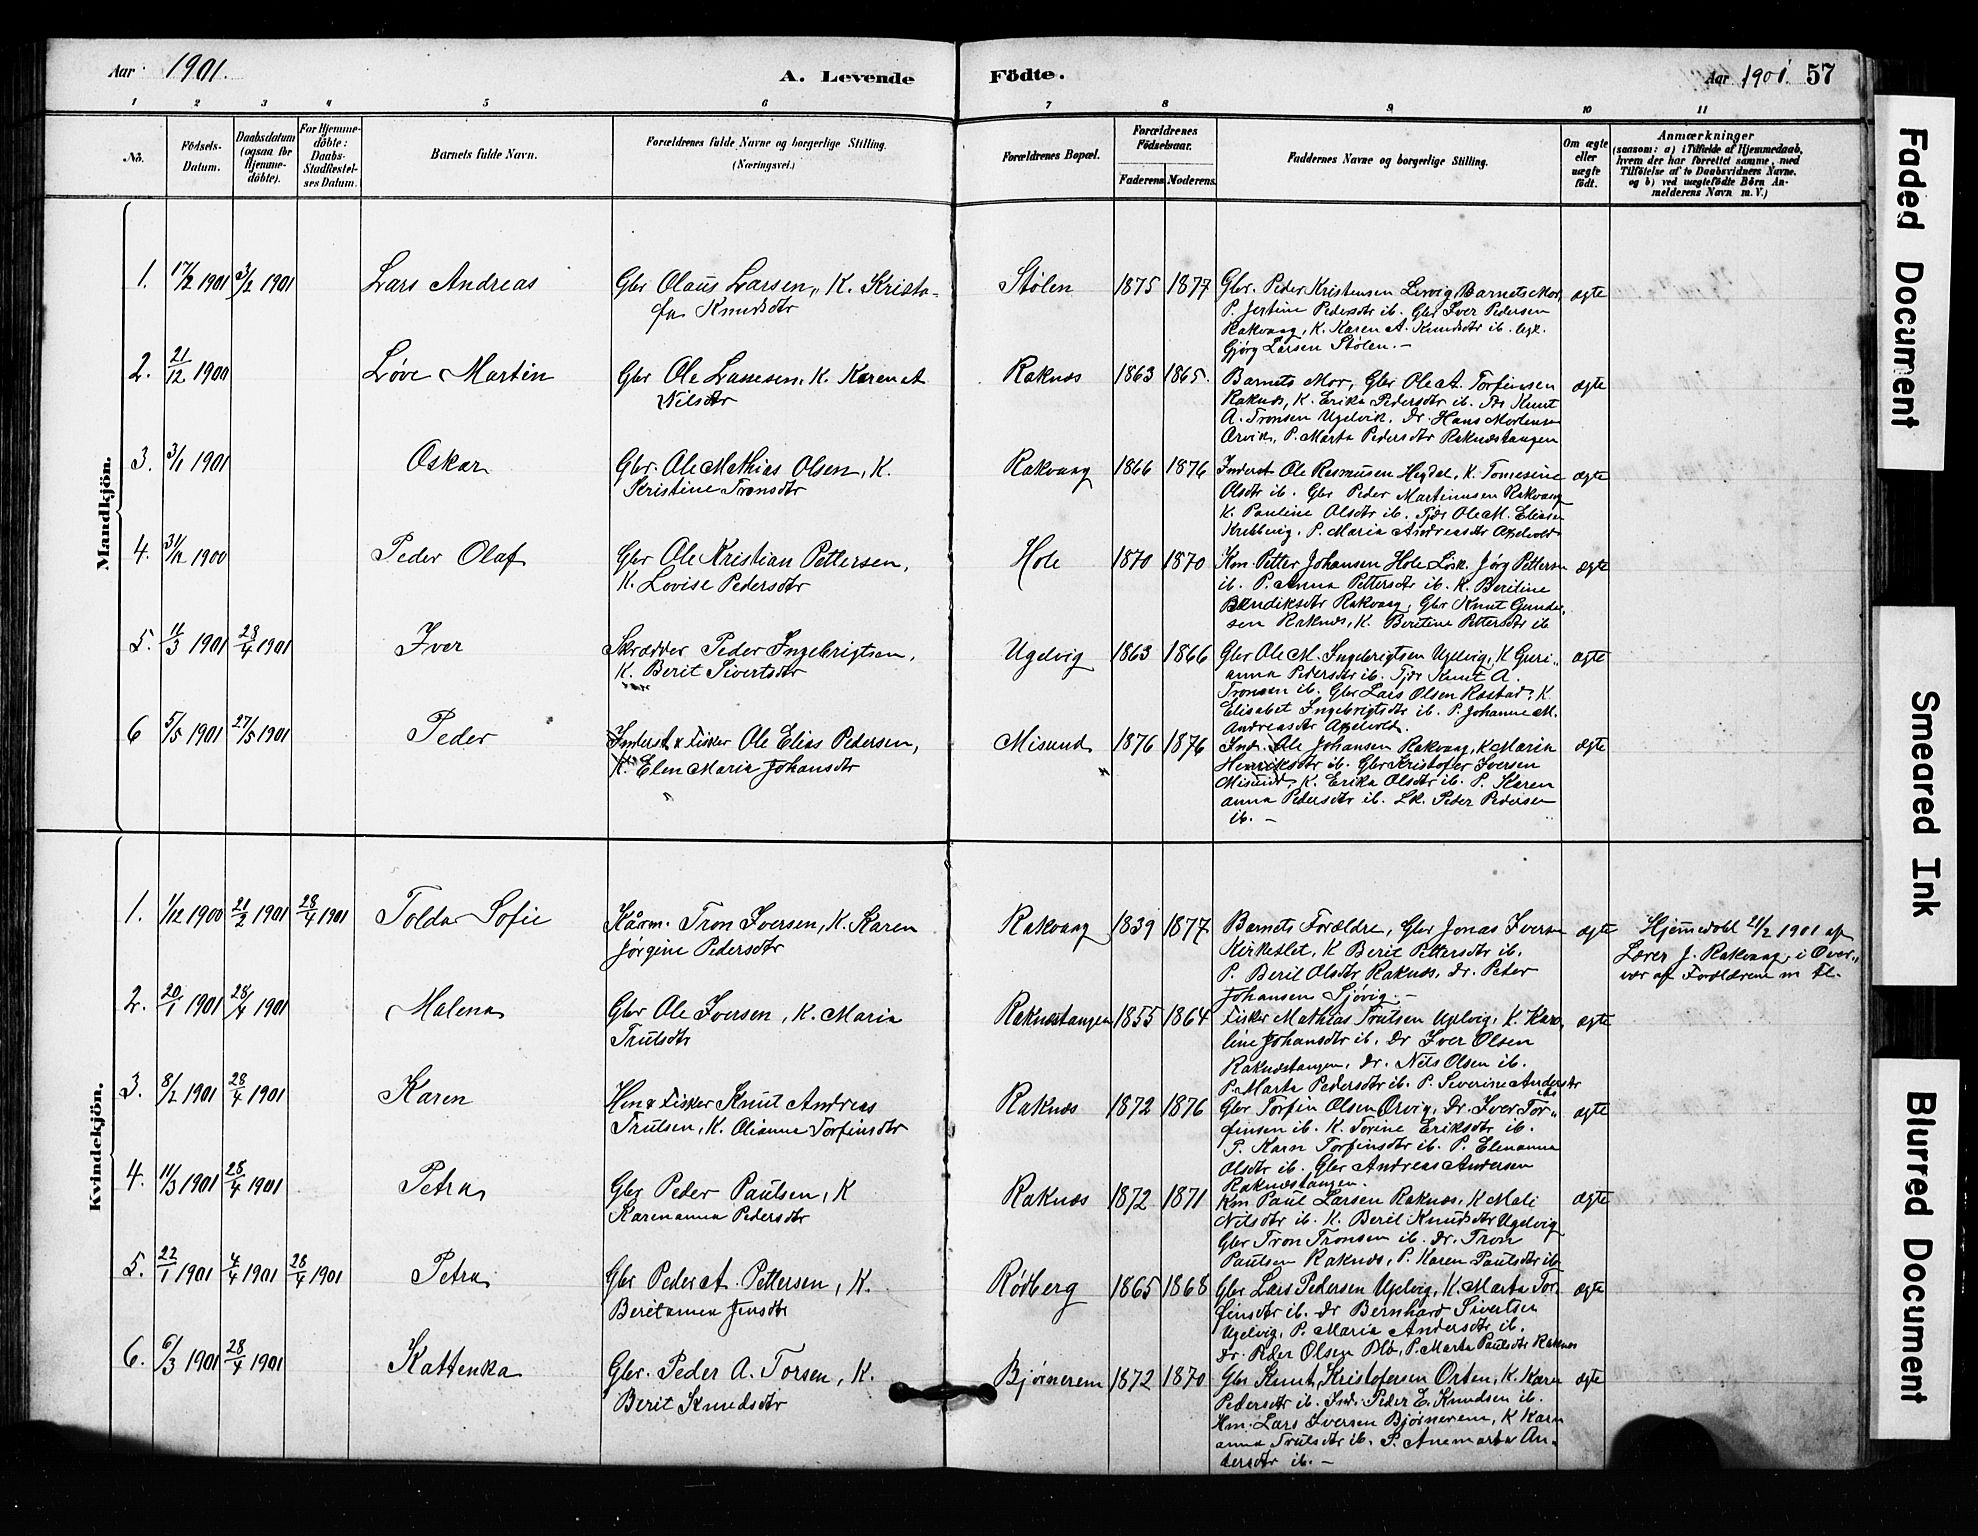 Aar 1901. A. Levende Födte. Aar 1901. 57
1 2 3 4 5 6 7 8 9 10 11
No.
Födsels-Datum.
Daabsdatum (ogsaa for Hjemme-döbte).
For Hjemme-döbte: Daabs-Stadfæstel-ses Datum.
Barnets fulde Navn.
Forældrenes fulde Navne og borgerlige Stilling. (Næringsvei.)
Forældrenes Bopæl.
Forældrenes Födselsaar.
Faderens Moderens.
Faddernes Navne og borgerlige Stilling.
Om ægte eller uægte födt.
Anmærkninger
(saasom: a) i Tilfælde af Hjemmedaab,
hvem der har forrettet samme, med
Tilföielse af to Daabsvidners Navne.
og b) ved uægtefödte Börn An-
melderens Navn m. V.)
Mandkjön.
1. 17/2 1901 3/2 1901 Lars Andreas Gbr Olaus Larsen, K. Kristo- Stølen 1875 1877 Gbr. Peder Kristensen Lervig, Barnets Mor, ægte
fa Knudsdtr P. Jertine Pedersdtr ib. Gbr Iver Pedersen
Rakvaag, K. Karen A. Knudsdtr ib.
Gjørg Larsen Stølen. -
2. 21/12 1900 Løve Martin Gbr Ole Lassesen, K. Karen A Raknæs 1863 1865. Barnets Mor, Gbr Ole A. Torfinsen ægte
Nilsdtr Raknæs, K. Erika Pedersdtr ib. Knut
A. Tronsen Ugelvik, Dr. Hans Mortensen
Orvik, P. Marta Pedersdtr Raknæstangen
3. 3/1 1901 Oskar Gbr. Ole Mathias Olsen, K. Rakvaag 1866 1876 Inderst Ole Rasmusen Hegdal, K. Tomesine ægte
Kristine Tronsdtr Olsdtr ib. Gbr Peder Martinusen Rakvaag
K. Pauline Olsdtr ib. Tjdr Ole M. Eliasen
P. Maria Andreasdtr
4. 31/12 1900 Peder Olaf Gbr Ole Kristian Pettersen, Hole 1870 1870 Km. Petter Johansen Hole, Løsk. Jørg Pettersen ægte
K. Lovise Pedersdtr ib. P. Anna Pettersdtr ib. K. Beritine
Bendiksdtr Rakvaag, Gbr Knut Gunder-
sen Raknæs, K. Beritine Pettersdtr ib
5. 11/3 1901 28/4 1901 Iver Skrædder Peder Ingebrigtsen, Ugelvig 1863 1866 Gbr Ole M. Ingebrigtsen Ugelvig, K Guri- ægte
K. Berit Sivertsdtr anna Pedersdtr ib. Tjdr Knut A.
Tronsen ib. Gbr Lars Olsen Rostad, K.
Elisabet Ingebrigtsdtr ib. P. Johanne M.
Andreasdtr
6 5/5 1901 27/5 1901 Peder Inderst & Fisker Ole Elias Pedersen, Misund 1876 1876 Ind. Ole Johansen Rakvaag, K Maria ægte
K. Elen Maria Johansdtr Henriksdtr ib. Gbr Kristofer Iversen
Misund, K. Erika Olsdtr ib. P. Karen
anna Pedersdtr ib. Lk. Peder Pedersen
ib. -
Kvindekjön.
1. 1/12 1900 21/2 1901 28/4 1901 Tolda Sofie Kårm. Tron Iversen, K. Karen Rakvaag 1839 1877 Barnets Forældre, Gbr Jonas Iversen ægte Hjemmedøbt 21/2 1901 af
Jørgine Pedersdtr Kirkeslet, K Berit Pettersdtr ib. Lærer J. Rakvaag, i Over-
P. Berit Olsdtr Raknæs, Dr. Peder vær af Forældrene m fl.
Johansen Sjøvig. -
2. 20/1 1901 28/4 1901 Malena Gbr Ole Iversen, K. Maria Raknæstangen 1855 1864 Fisker Mathias Trutsen Ugelvig, K. Karo- ægte
Trutsdtr line Johansdtr ib. Dr Iver Olsen
Raknæstangen, Dr. Nils Olsen ib.
P. Marta Pedersdtr ib. P. Severine Andersdtr
ib.
3. 8/2 1901 28/4 1901 Karen Hm & Fisker Knut Andreas Raknæs 1872 1876 Gbr Torfin Olsen Orvig, Dr. Iver Tor- ægte
Trutsen, K. Olianna Torfinsdtr finsen ib. K. Torine Eriksdtr ib.
P. Karn Torfinsdtr ib. P. Elenanna
Olsdtr ib. Gbr Andreas Andersen
Raknæstangen.
4. 11/3 1901 28/4 1901 Petra Gbr Peder Paulsen, K Raknæs 1872 1871 Km Paul Larsen Raknæs, K Mali ægte
Karenanna Pedersdtr Nilsdtr ib. K. Berit Knudsdtr Ugelvig
Gbr Tron Tronsen ib. Dr. Tron
Paulsen Raknæs, P. Karen Paulsdtr ib
5. 22/1 1901 4/4 1901 28/4 1901 Petra Gbr Peder A. Pettersen, K. Rødberg 1865 1868 Gbr Lars Pedersen Ugelvig, K. Marta Tor- ægte
Beritanna Jensdtr finsdtr ib. Dr Bernhard Sivertsen
Ugelvig, P. Maria Andersdtr ib.
Dr. Peder Olsen P. Marta Paulsdtr Raknæs
6. 6/3 1901 28/4 1901 Kattenka Gbr. Peder A. Torsen, K. Bjørnerem 1872 1870 Gbr Knut Kristofersen Orten, K. Karen ægte
Berit Knudsdtr Pedersdtr ib. Ind. Peder E. Knudsen ib.
Hm. Lars Iversen Bjørnerem, K Karn
anna Trutsdtr ib. P. Anemarta An-
dersdtr ib. -
Faded Document
Smeared Ink
Blurred Document